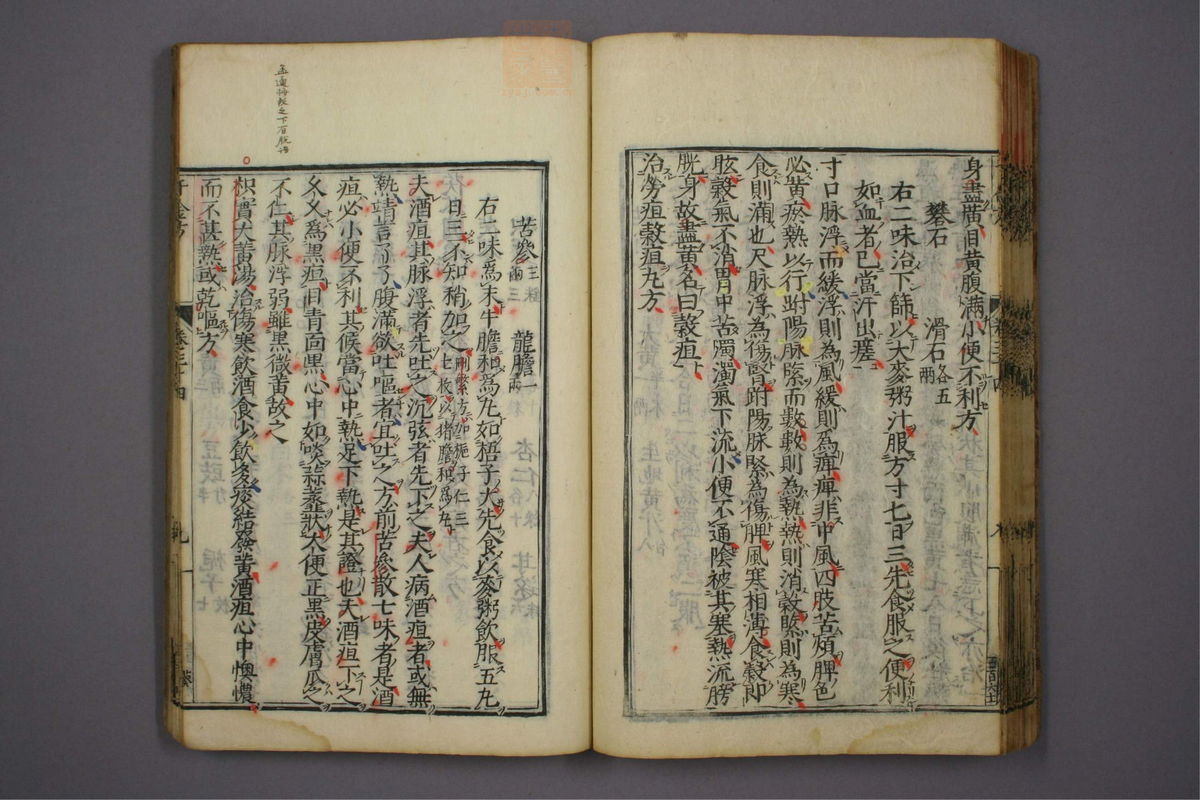 身盡黃目黄腹滿小便不利方
礬石 滑石各五兩
右二味治下篩以大麥粥汁服方寸匕日三先食服之便利
如血者已當汗出瘥
寸口脉浮而緩浮則為風緩則為痺痺非中風四肢苦煩脾色
必黄瘀熱以行趺陽脉緊而數數則為熱熱則消穀緊則為寒
食則滿也尺脉浮為傷腎趺陽脉緊為傷脾風寒相薄食穀即
眩穀氣不消胃中苦濁濁氣下流小便不通陰被其寒熱流膀
胱身故盡黄名曰穀疸
治勞疸穀疸丸方
苦參三兩 龍膽一兩
右二味爲末牛膽和為丸如梧子大先食以麥粥飲服五丸
日三不知稍加之刪繁方加梔子仁三七枚以猪膽和爲丸
夫酒疸其脉浮者先吐之沉弦者先下之夫人病酒疸者或無
熱靖言了了腹滿欲吐嘔者宜吐之方煎苦參散七味者是酒
疸必小便不利其候當心中熱足下熱是其證也夫酒疸下之
久久為黒疸目青面黒心中如啖蒜虀狀大便正黒皮膚爪之
不仁其脉浮弱雖黒微黄故之
枳實大黄湯治傷寒飲酒食少飲多痰結發黄酒疸心中懊憹
而不甚熱或乾嘔方
千金方 卷三十四
九